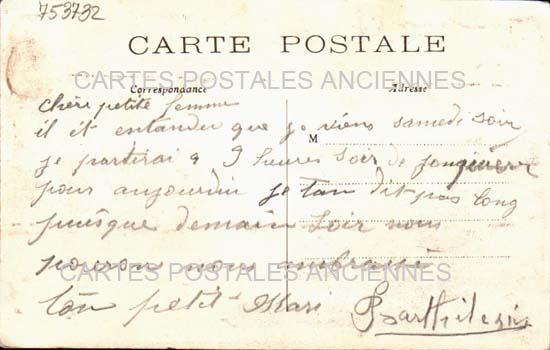 753732
CARTE POSTALE
CARTES POSTALES ANCIENNES
Correspondance
Adresse
chère petite femme
il et entander que je viens samedi soir
M
je partirai a 9 heures soir de
pour aujourdui je tan dit pas long
puisque demain soir nous
pouron nous
CARTES POSTALES ANCIENNES
ton petit Mari